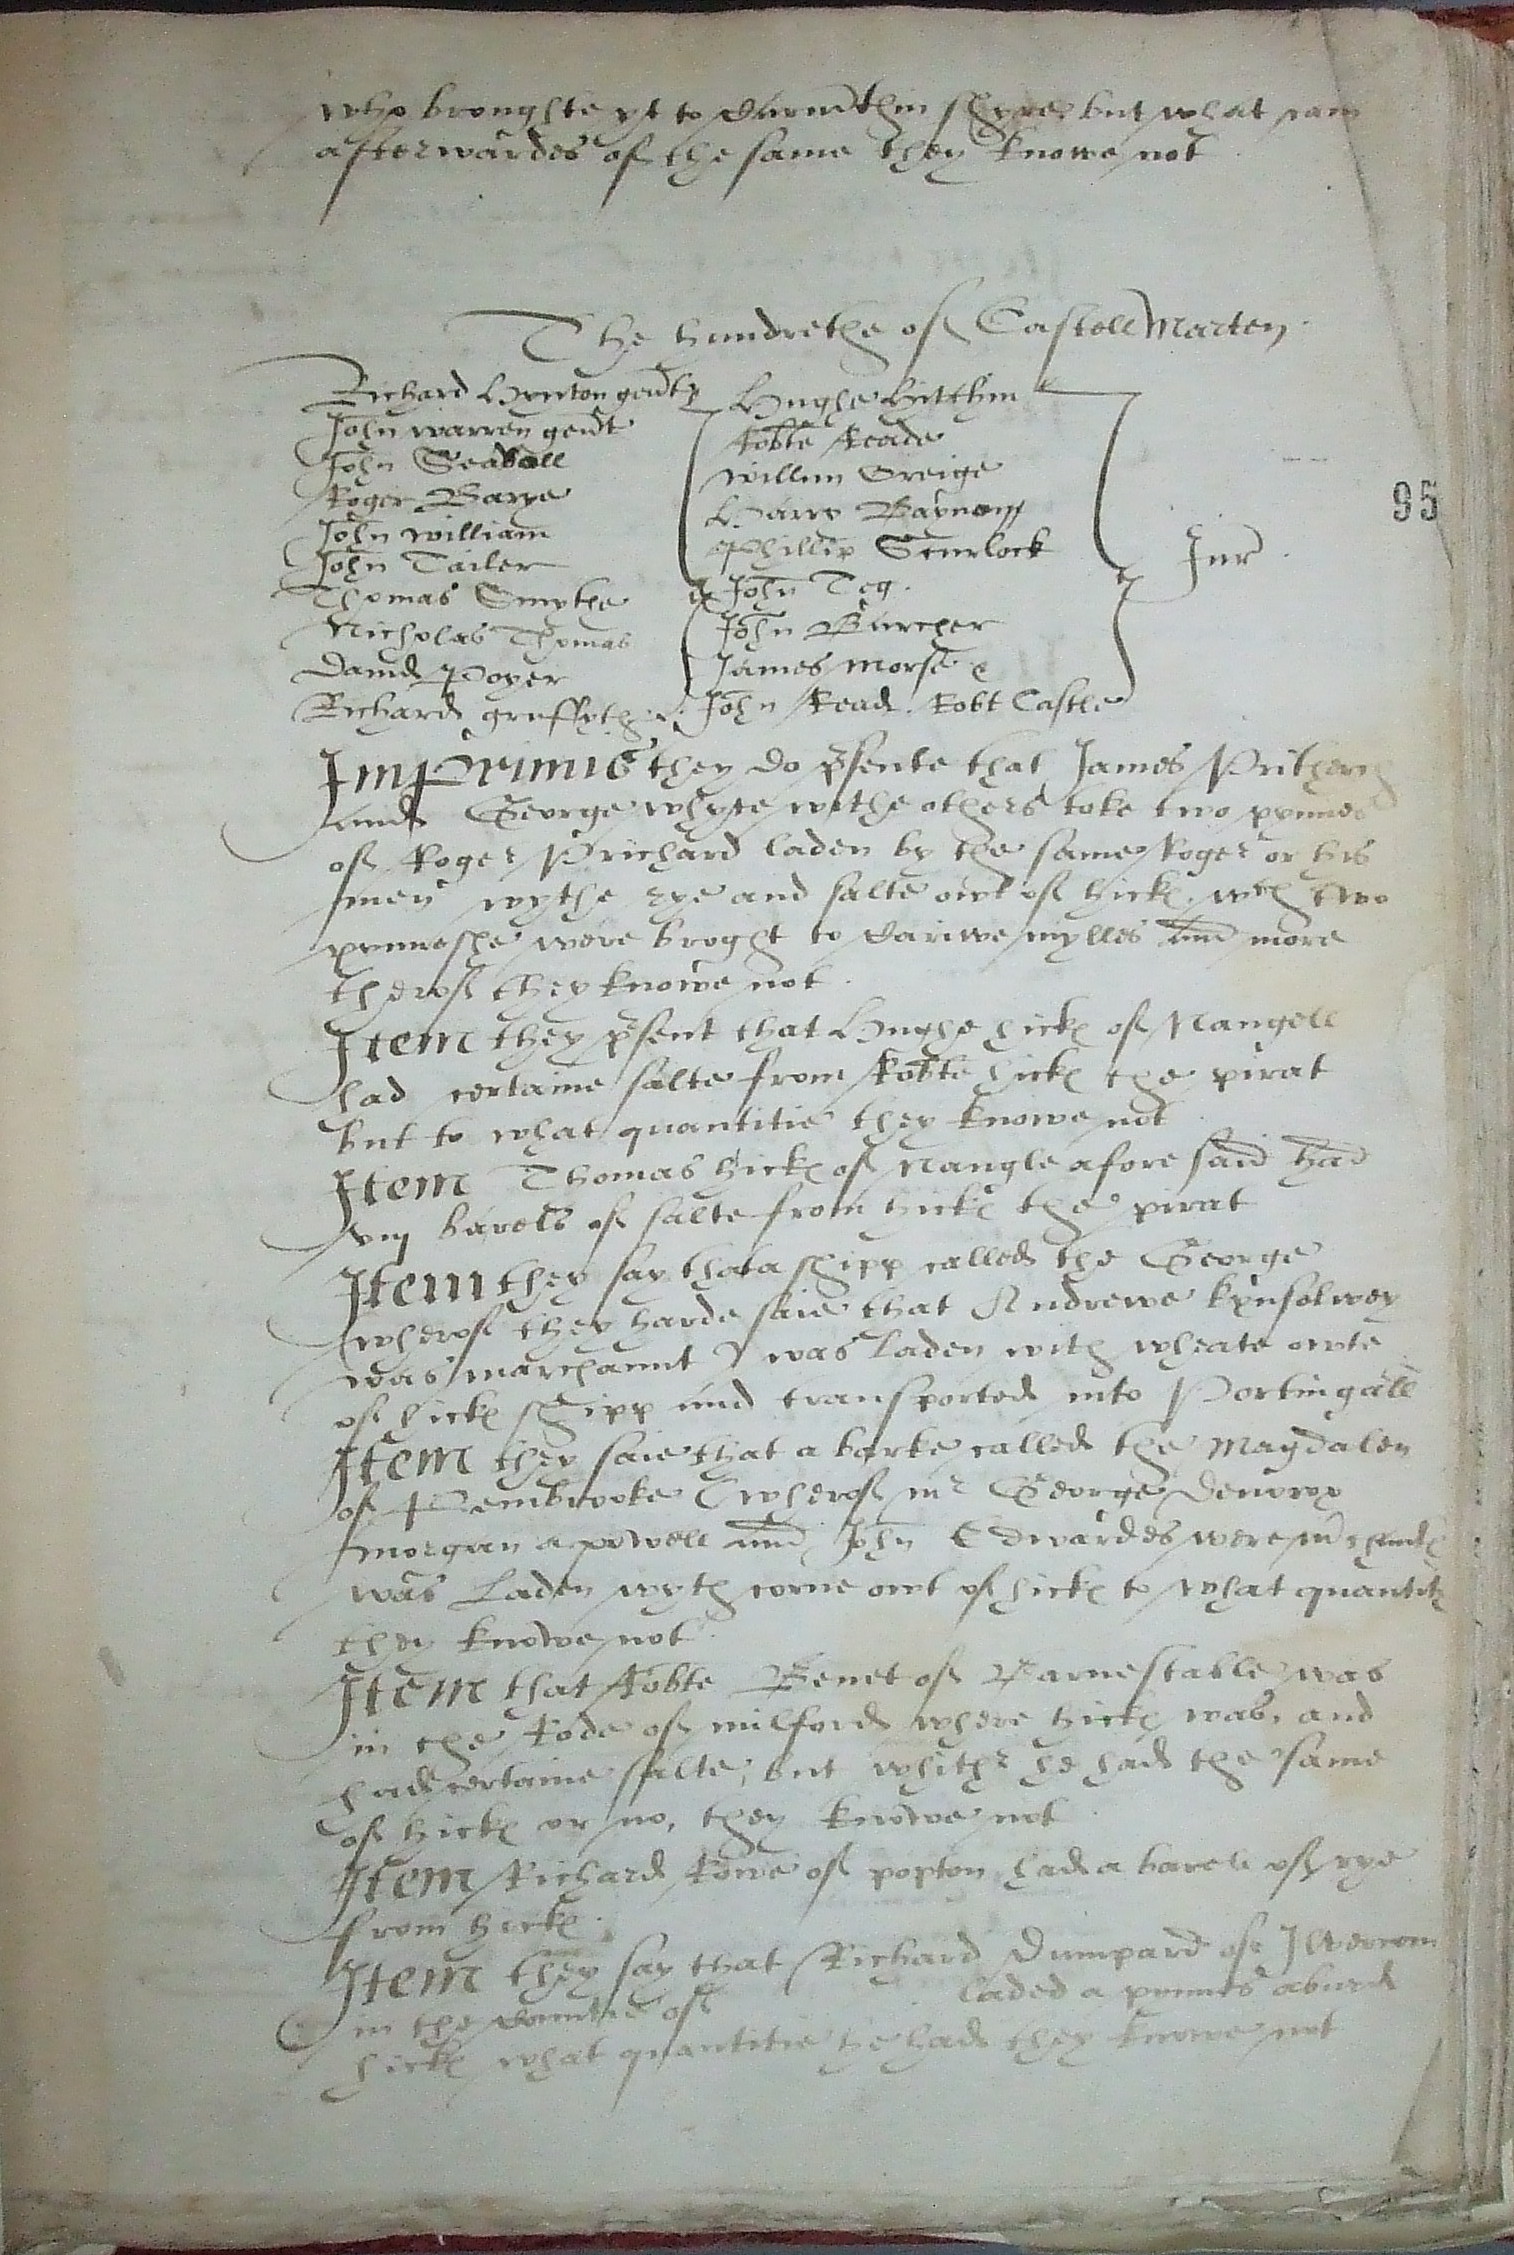 who broughte yt to Carmthin shyre but what cam
afterwardes of the same they knowe not
The hundrethe of Castell Marten
Richard Hynton gent
John warren gent
John Seaball
Roger Barye
John william
John Tailer
Thomas Smythe
Nicholas Thomas
David Poyer
Richard gruffyth
Hughe hitchin
Robte Reade
willm Greige
Harry Baynam
Phillip Scurlock
John Teg
John Burcher
James Morse
John Read. Robt Castle
Jur
95
Imprimis they do psente that James Prithery
and George whyte withe others toke two pynnes
of Roger Prichard laden by the same Roger or his
men wythe rye and salte owt of hick. wch two
pynneshe were broght to Cariwe mylles and more
therof they knowe not.
Item they psent that Hughe hick of Nangell
had certaine salte from Robte hick the pirat
but to what quantitie they knowe not
Item Thomas hick of Nangle afore said had
viij barels of salte from hick the pirat
Item they say that a shipp called the George
wherof they harde saie that Andrewe kynselwey
was marchaunt was laden with wheate owte
of hick shipp and transported into Portingall
Item they saie that a barke called the Magdalen
of Pembrooke (wherof mr George Devowx
morgan apowell and John Edwardes were mchantes
was laden wyth corne owt of hick to what quantity
they knowe not
Item that Robte Benet of Barnestable was
in the Rode of milford where hick was, and
had certaine salte, but whithr he had the same
of hick or no, they knowe not
Item Richard Rowe of popton had a barell of rye
from hick.
Item they say that Richard Dumpard of
in the countie of laded a pynnes abord
hick what quantitie he had they knowe not